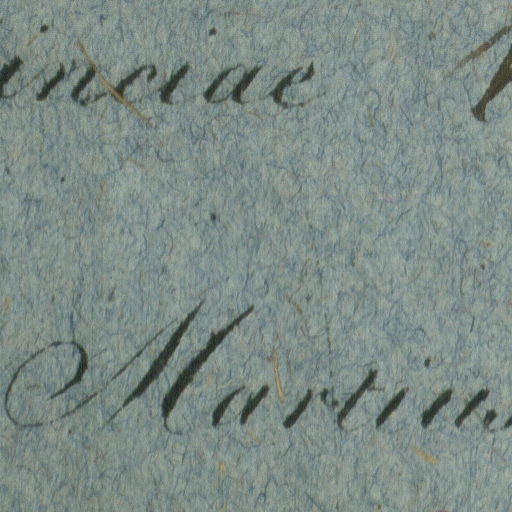 inciae
Martinu